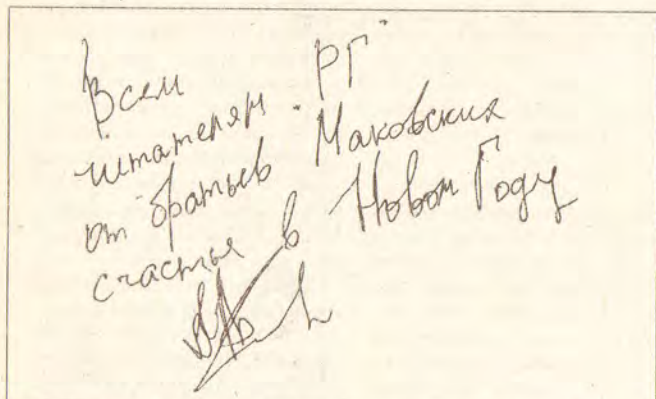 Всем
читателям "РГ"
от братьев Маковских
счастья в Новом Году